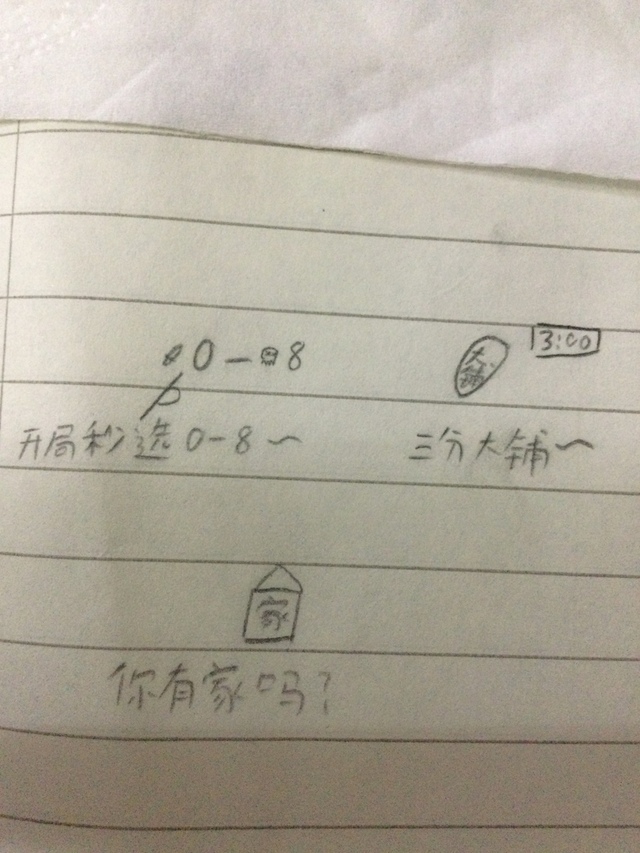 0-8 大铺 3:00
开局秒选0-8~ 三分大铺~
家
你有家吗?